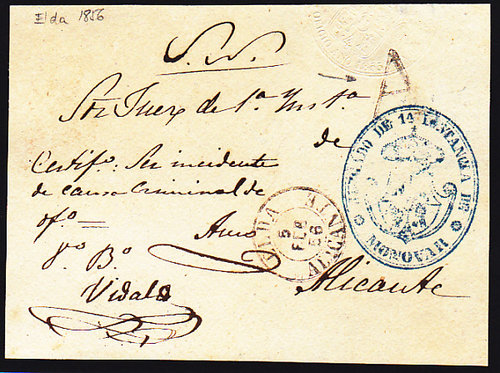 Elda 1856
S. N.
Sor Juez de 1ª Instª
de
Certifº. Ser incidente
de causa Criminal de
ofº.
Vº Bº
Vidal
Alicante
JUZGADO DE 1ª INSTANCIA DE
MONOVAR
ELDA
5
FEB
56
ALICANTE
A